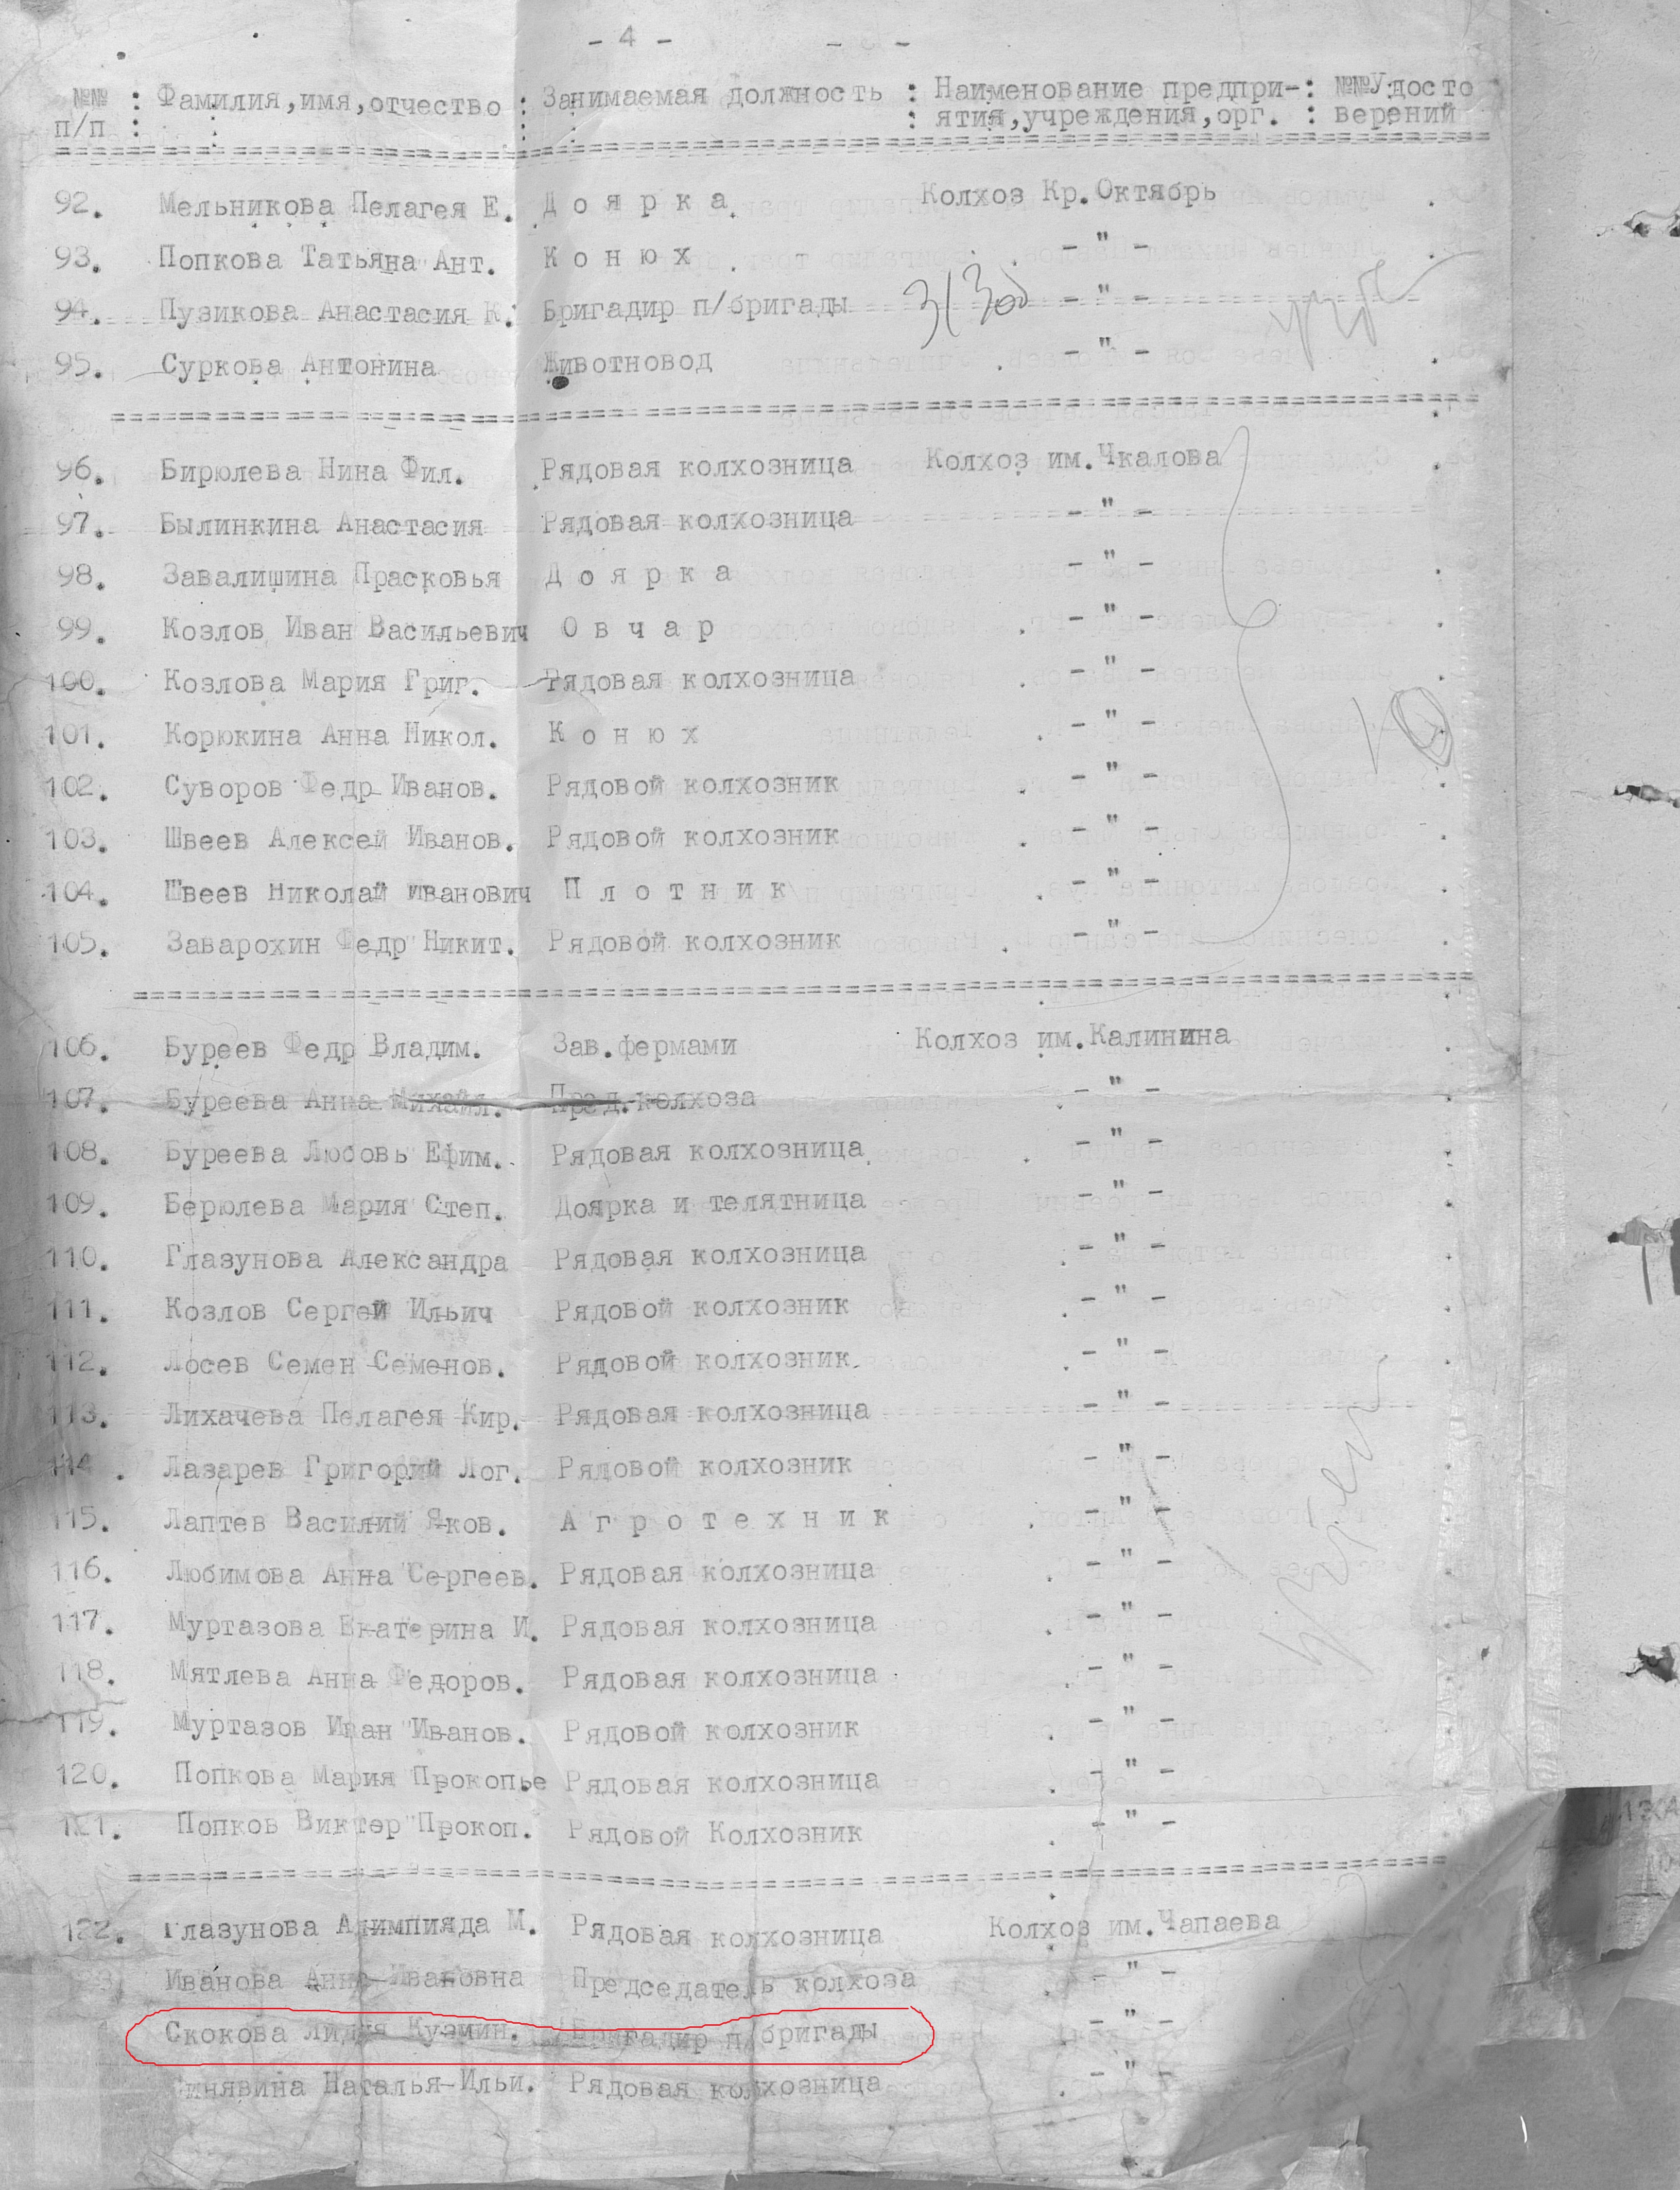 - 4 -
№№ : Фамилия,имя,отчество : Занимаемая должность : Наименование предпри-: №№Удосто
п/п : : : : ятия,учреждения,орг. : верений
92. Мельникова Пелагея Е. Доярка Колхоз Кр.Октябрь
93. Попкова Татьяна Ант. Конюх - " -
94. Пузикова Анастасия К. Бригадир п/бригады - " -
95. Суркова Антонина Животновод - " -
96. Бирюлева Нина Фил. Рядовая колхозница Колхоз им.Чкалова
97. Былинкина Анастасия Рядовая колхозница - " -
98. Завалишина Прасковья Доярка - " -
99. Козлов Иван Васильевич Овчар - " -
100. Козлова Мария Григ. Рядовая колхозница - " -
101. Корюкина Анна Никол. Конюх - " -
102. Суворов Федр Иванов. Рядовой колхозник - " -
103. Швеев Алексей Иванов. Рядовой колхозник - " -
104. Швеев Николай Иванович Плотник - " -
105. Заварохин Федр Никит. Рядовой колхозник - " -
10
106. Буреев Федр Владим. Зав.фермами Колхоз им.Калинина
107. Буреева Анна Михайл. Пред.колхоза - " -
108. Буреева Любовь Ефим. Рядовая колхозница - " -
109. Берюлева Мария Степ. Доярка и телятница - " -
110. Глазунова Александра Рядовая колхозница - " -
111. Козлов Сергей Ильич Рядовой колхозник - " -
112. Лосев Семен Семенов. Рядовой колхозник - " -
113. Лихачева Пелагея Кир. Рядовая колхозница - " -
114. Лазарев Григорий Лог. Рядовой колхозник - " -
115. Лаптев Василий Яков. Агротехник - " -
116. Любимова Анна Сергеев. Рядовая колхозница - " -
117. Муртазова Екатерина И. Рядовая колхозница - " -
118. Мятлева Анна Федоров. Рядовая колхозница - " -
119. Муртазов Иван Иванов. Рядовой колхозник - " -
120. Попкова Мария Прокопье Рядовая колхозница - " -
121. Попков Виктор Прокоп. Рядовой Колхозник - " -
122. Глазунова Алимпияда М. Рядовая колхозница Колхоз им.Чапаева
Иванова Анна Ивановна Председатель колхоза - " -
Скокова Лидия Кузмин. Бригадир п/бригады - " -
инявина Наталья Ильи. Рядовая колхозница - " -